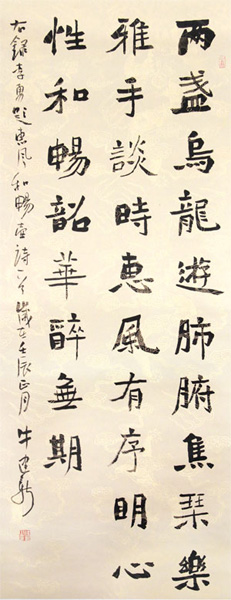 两盏乌龙遊肺腑焦琹樂
雅手談時惠風有序明心
性和暢韶華醉無期
右錄李勇題惠風和暢壺詩一首歲在壬辰正月 牛建新